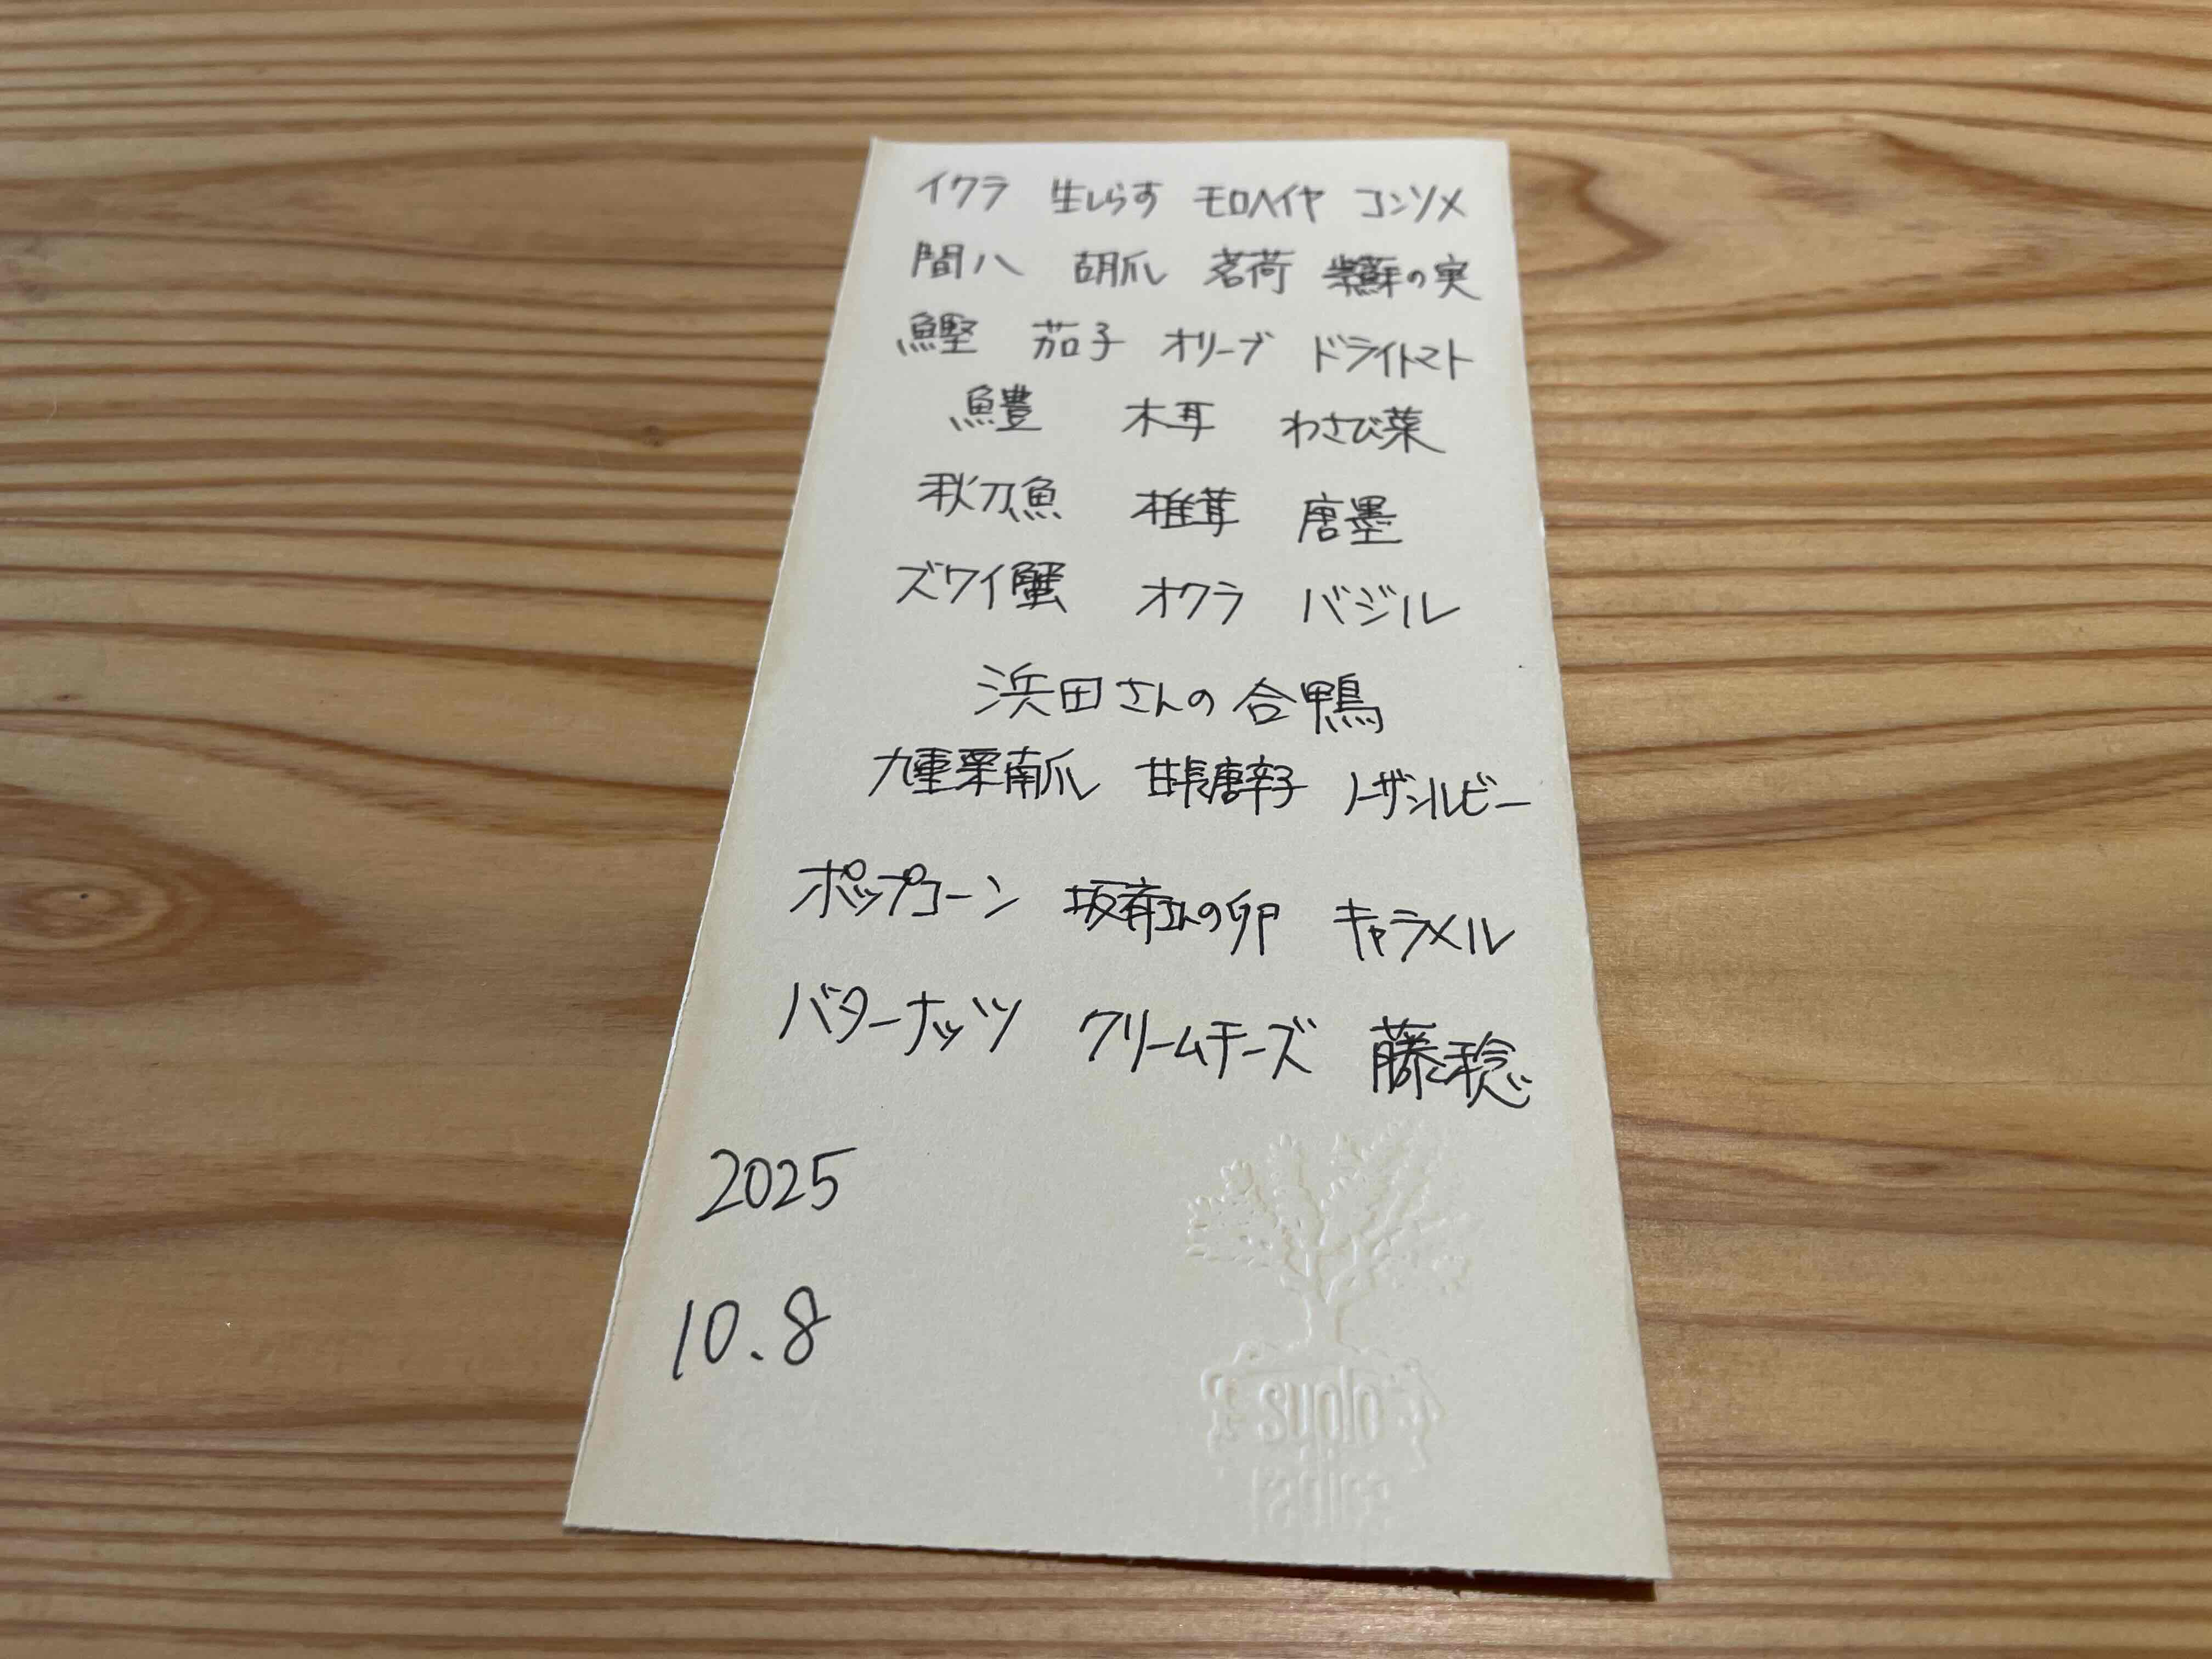 イクラ 生しらす モロヘイヤ コンソメ
間八 胡瓜 茗荷 紫蘇の実
鰹 茄子 オリーブ ドライトマト
鱧 木耳 わさび菜
秋刀魚 椎茸 唐墨
ズワイ蟹 オクラ バジル
浜田さんの合鴨
九重栗南瓜 甘長唐辛子 ノーザンルビー
ポップコーン 坂斉さんの卵 キャラメル
バターナッツ クリームチーズ 藤稔
2025
10.8
suolo